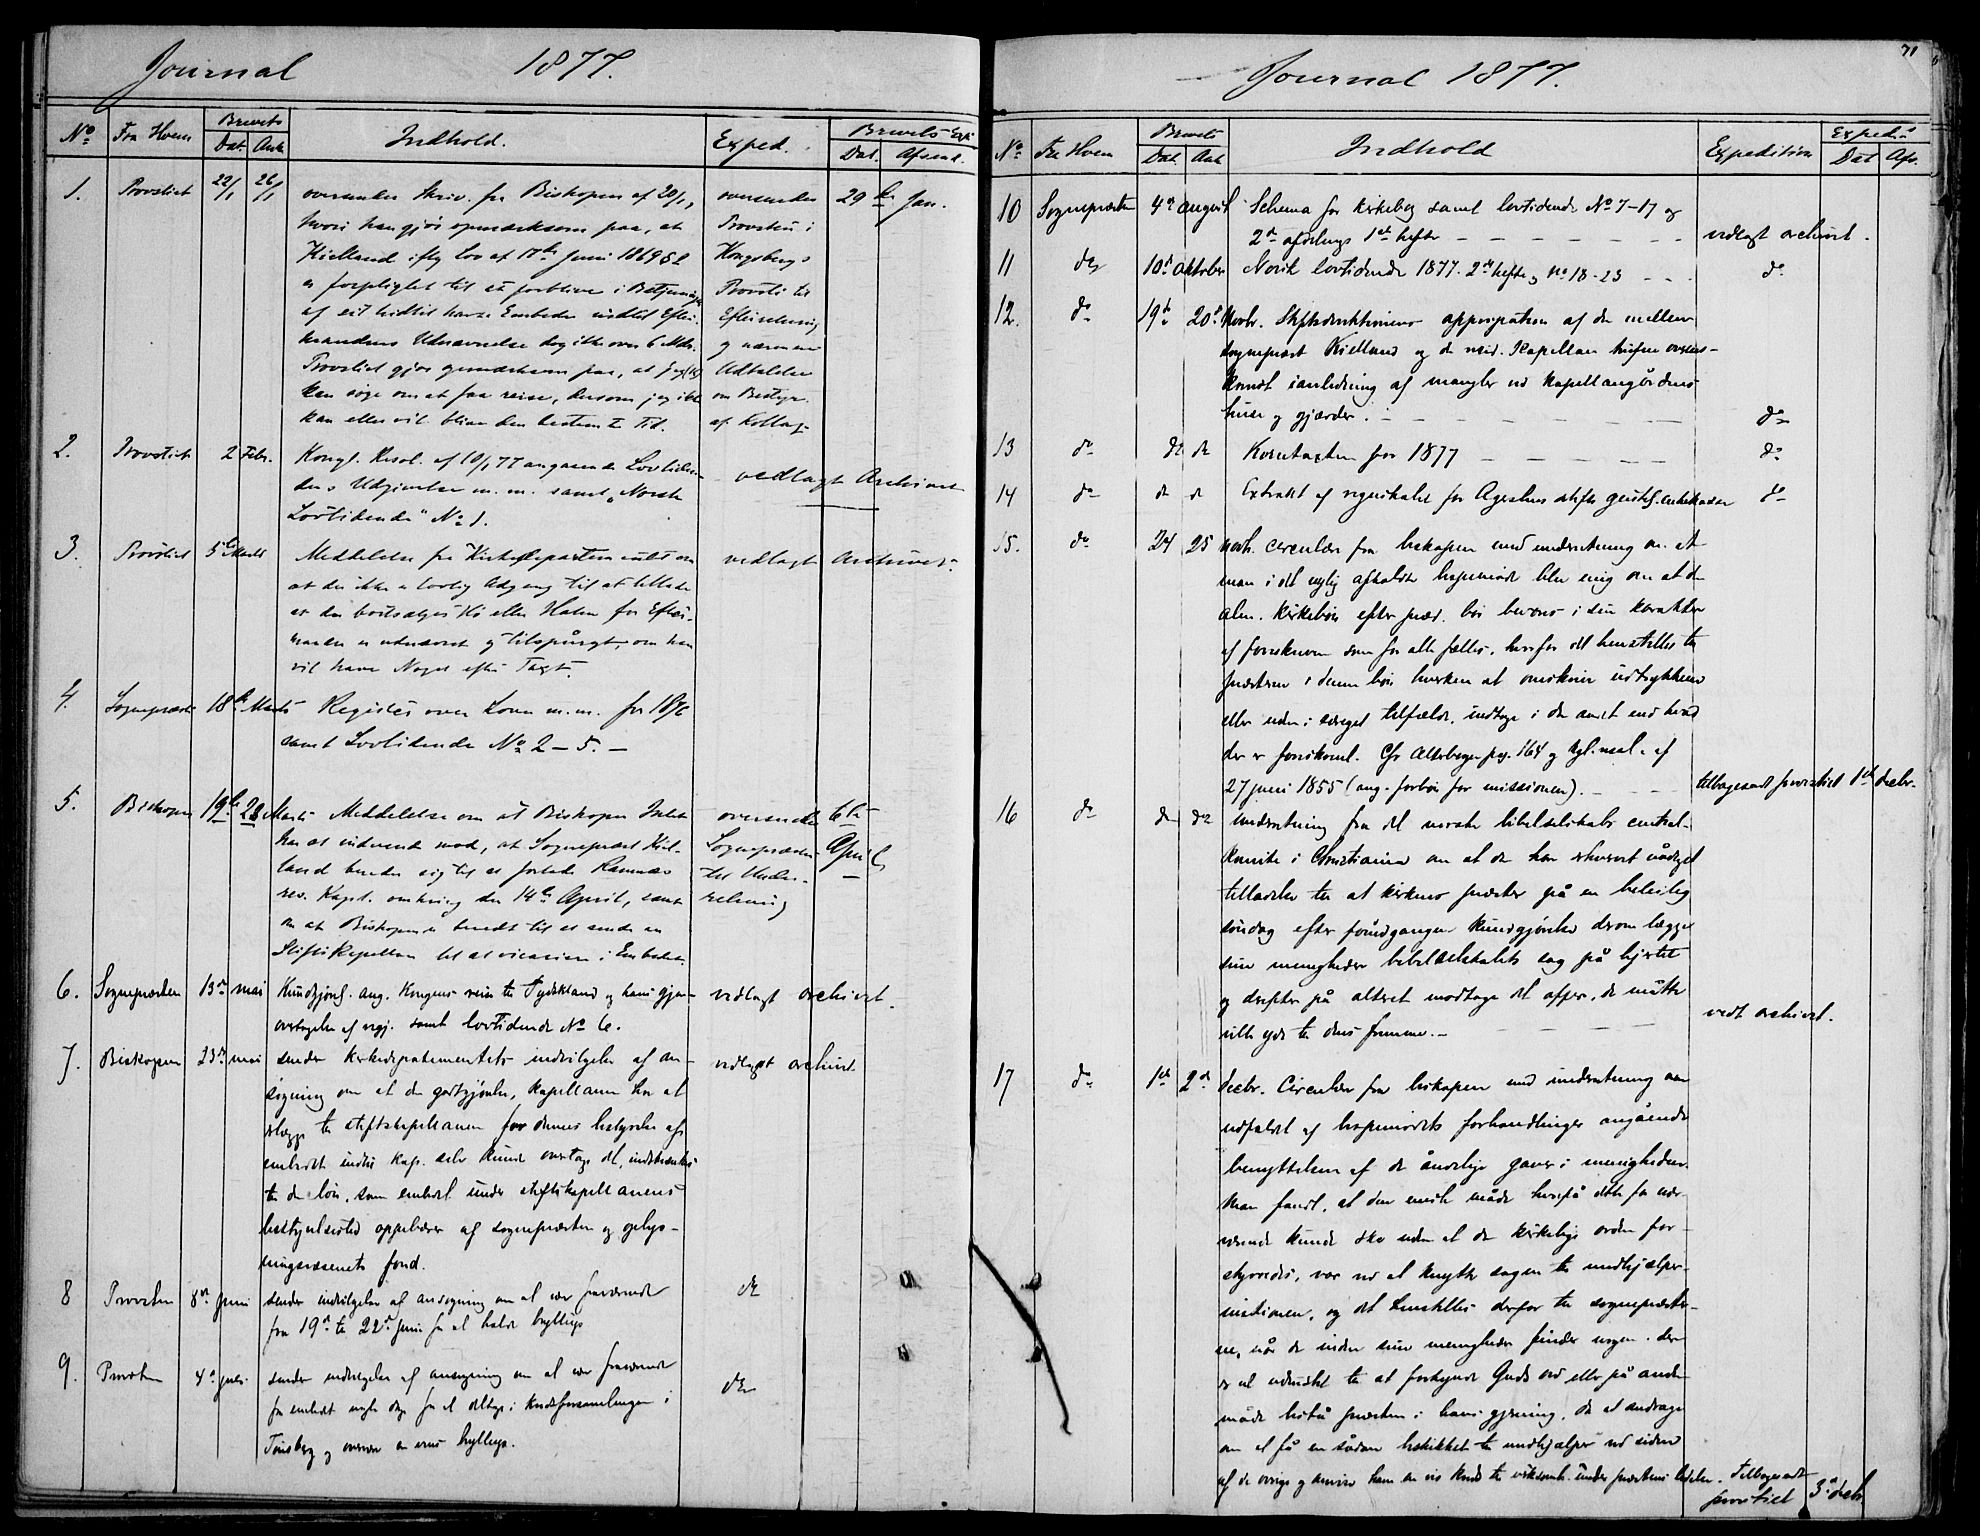 Journal 1877.
No Fra Hvem Brevets Dat. Ank. Indhold. Exped. Brevets Exp. Dat. Afsend.
1. Provstiet 22/1 26/1 oversender Skriv. fra Biskopen af 20/1, oversendes 29de Jan.
hvori han gjør opmærksom paa, at Provsten i
Kielland ifølg Lov af 12te Juni 1869 § 2 Kongsbergs
er forpligtet til at forblive i Betjeningen Provsti til
af sit hidtil havte Embede indtil Efter- Efterretning
mandens Udnævnelse dog ikke over 6 Mdr. og nærmere
Provstiet gjør opmærksom paa, at Udtalelse
kan søge om at faa reise, dersom jeg ikke om Bestyr.
kan eller vil blive den bestemte Tid. af Kollag.
2. Provstiet 2 Febr. Kongl. Resol. af 10/1 77 angaaende Lovtiden-
dens Udgivelse m. m. samt "Norsk vedlagt Archivet
Lovtidende" No 1.
3. Provstiet 5te Marts Meddelelse fra Kirkedepartementet om vedlagt Archivet.
at der ikke er lovlig Adgang til at tillade
at der bortsælges Hø eller Halm før Efter-
manden er udnævnt og tilspurgt, om han
vil have Noget efter Taxt.
4. Sognepræsten 18de Marts Register over Love m.m. for 1876
samt Lovtidende No 2 – 5. –
5. Biskopen 19de 28 Marts Meddelelse om at Biskopen Intet oversendt 6te
har at indvende mod, at Sognepræst Kiel- Sognepræsten April
land bereder sig til at forlade Ramnæs til Under-
res. Kapel. omkring den 14de April, samt retning
om at Biskopen er beredt til at sende en
Stiftskapellan til at vicariere i Embedet.
6. Sognepræsten 13de mai Kundgjørels. ang. Kongens reise til Tydskland og hans gjen- vedlagt archivet.
overtagelse af regj. samt lovtidende No 6.
7. Biskopen 23de mai sender Kirkedepartementets indvilgelse af an- vedlagt archivet
søgning om at den godtgjørelse, kapellanen har at
udlægge til stiftskapellanen for dennes bestyrelse af
embedet indtil kap. selv kunde overtage det, indskrænkes
til den løn, som embedet under stiftskapellanens
bestyrelsestid oppebærer af sognepræsten og oplys-
ningsvæsenets fond.
8 Provsten 8de juni sender indvilgelse af ansøgning om at være fraværende do
fra 19de til 22de juni for at holde bryllup
9. Provsten 4de juli sender indvilgelse af ansøgning om at være fraværende do
fra embedet nogle dage for at deltage i Kredsforsamlingen i
Tønsberg og overvære en vens bryllup.
71
Journal 1877.
No Fra Hvem Brevets Dat. Ank. Indhold Expedition Exped. Dat Afs.
10 Sognepræsten 4de august Schema for kirkebog samt lovtidende No 7–17 og
2den afdelings 1ste hefte – – – vedlagt archivet.
11 do 10de oktober Norsk lovtidende 1877. 2det hefte, No 18-23 – – do
12. do 19de 20de Novbr. Stiftsdirektionens approbation af den mellem
sognepræst Kielland og den resid. Kapellan trufne overens-
komst i anledning af mangler ved kapellangårdens
huse og gjærder. – – – do
13 do do do Korntaxten for 1877 – – – do
14 do do do Extrakt af regnskabet for Agershus stifts geistl. enkekasse do
15. do 24 25 novb. Circulær fra biskopen med underretning om at
man i det nylig afholdte bispemøde blev enig om at den
alm. kirkebøn efter præd. bør bevares i sin karakter
af foreskreven som for alle fælles, hvorfor det henstilles til
præsterne i denne bøn hverken at omskrive udtrykkene
eller uden i særeget tilfælde indtage i den andet end hvad
der er foreskrevet. Cfr Alterbogen pag. 164 og kgl. resol. af
27 juni 1855 (ang. forbøn for missionen). – – tilbagesendt provstiet 1ste decbr.
16 do do do Underretning fra det norske bibelselskabs central-
komite i Christiania om at den har erhvervet nådigst
tilladelse til at kirkens præster på en beleilig
søndag efter forudgangen kundgjørelse derom lægger
sine menigheder bibelselskabets sag på hjertet
og derefter på alteret modtage det offer, de måtte
ville yde til dens fremme. – – – vedl archivet.
17 do 1ste 2den decbr. Circulær fra biskopen med underretning om
udfaldet af bispemødets forhandlinger angående
benyttelsen af de åndelige gaver i menigheden.
Man fandt, at den eneste måde hvorpå dette for nær-
værende kunde ske uden at den kirkelige orden for-
styrredes, var ved at knytte sagen til medhjælper-
institutionen, og det henstilles derfor til sognepræster-
ne, når de inden sine menigheder finder nogen, der
er vel udrustet til at forkynde Guds ord eller på anden
måde bistå præsten i hans gjerning, da at andrage
om at få en sådan beskikket til medhjælper ved siden
af de øvrige og anvise ham en vis kreds til virksomh. under præstens ledelse. Tilbagesendt
provstiet 3de decbr